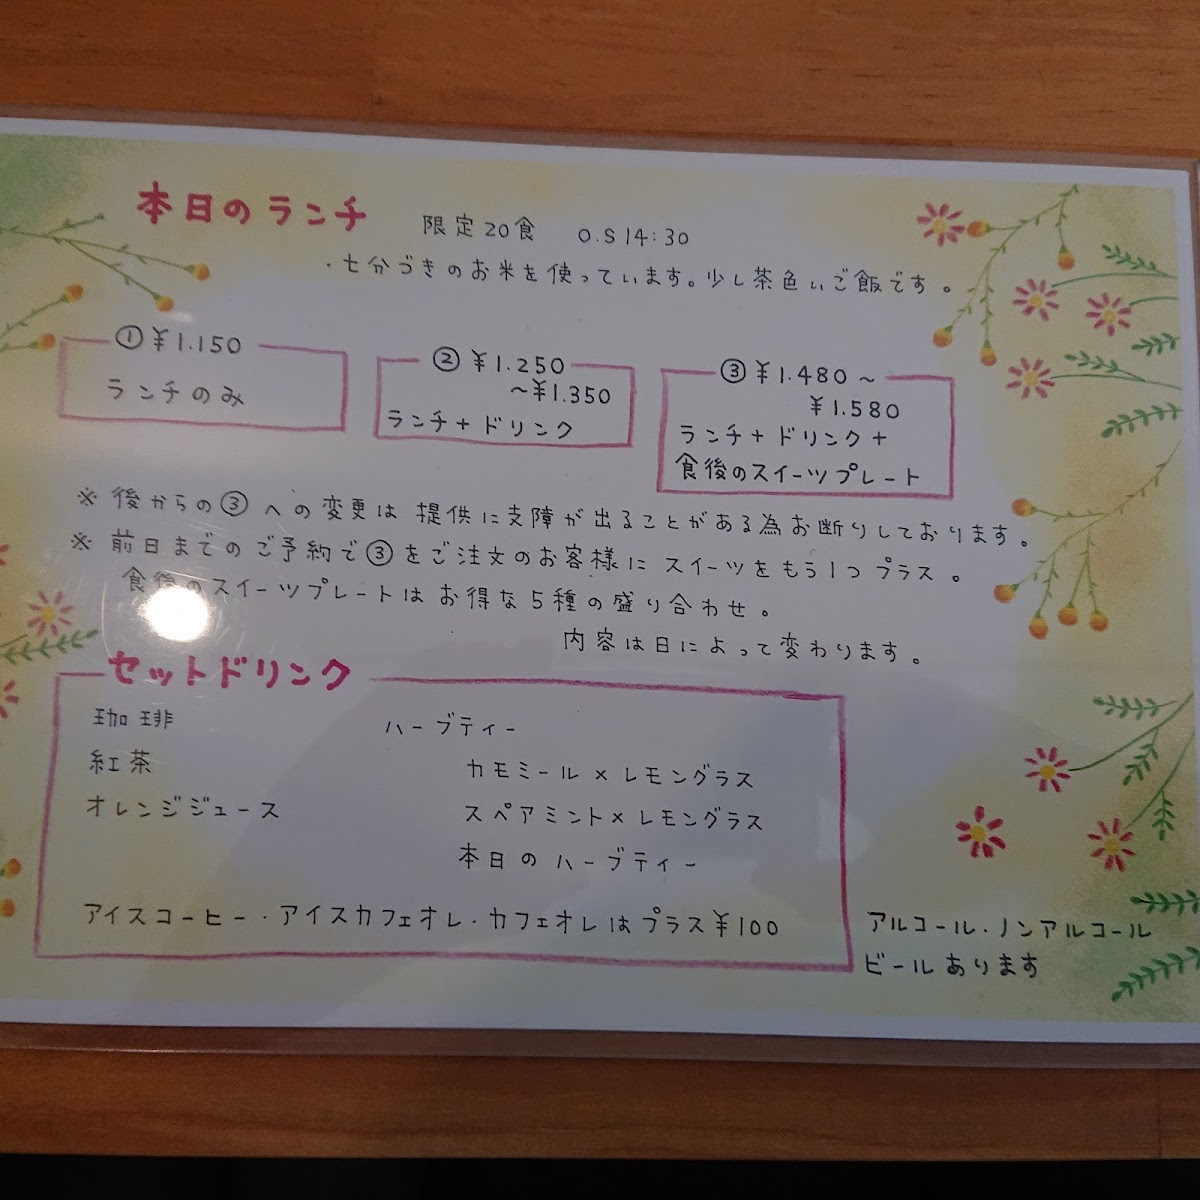 本日のランチ 限定20食 O.S 14:30
・七分づきのお米を使っています。少し茶色いご飯です。
①¥1.150
ランチのみ
②¥1.250
～¥1.350
ランチ+ドリンク
③¥1.480～
¥1.580
ランチ+ドリンク+
食後のスイーツプレート
※ 後からの③への変更は提供に支障が出ることがある為お断りしております。
※ 前日までのご予約で③をご注文のお客様にスイーツをもう1つプラス。
食後のスイーツプレートはお得な5種の盛り合わせ。
内容は日によって変わります。
セットドリンク
珈琲
紅茶
オレンジジュース
ハーブティー
カモミール×レモングラス
スペアミント×レモングラス
本日のハーブティー
アイスコーヒー・アイスカフェオレ・カフェオレはプラス¥100
アルコール・ノンアルコール
ビールあります